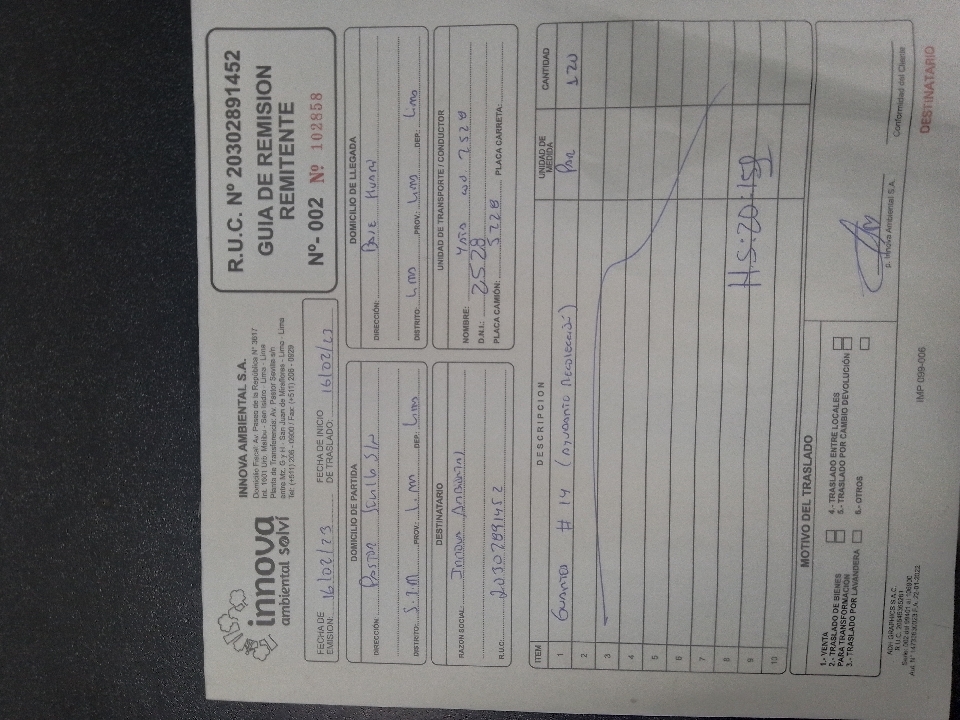 innova
ambiental solví
INNOVA AMBIENTAL S.A.
Domicilio Fiscal: Av. Paseo de la República N° 3617
Int. 1001 Urb. Malibu - San Isidro - Lima - Lima
Planta de Transferencia: Av. Pastor Sevilla s/n
entre Mz. G y H - San Juan de Miraflores - Lima - Lima
R.U.C. Nº 20302891452
GUIA DE REMISION
REMITENTE
Nº- 002 Nº 102858
FECHA DE EMISION: 16/02/23
FECHA DE INICIO DE TRASLADO: 16/02/23
DOMICILIO DE PARTIDA
DIRECCIÓN: Pastor Sevilla S/N
DISTRITO: S.J.M PROV.: Lima DEP.: Lima
DOMICILIO DE LLEGADA
DIRECCIÓN: Base
DISTRITO: Lima PROV.: Lima DEP.: Lima
DESTINATARIO
RAZON SOCIAL: Innova Ambiental
R.U.C.: 20302891452
UNIDAD DE TRANSPORTE / CONDUCTOR
NOMBRE: cod. 2528
D.N.I.: 2528
PLACA CAMIÓN: PLACA CARRETA:
ITEM DESCRIPCION UNIDAD DE MEDIDA CANTIDAD
1 Guantes # 14 (Ayudante Recoleccion) Par 120
2
3
4
5
6
7
8
9 H.S:20:15
10
MOTIVO DEL TRASLADO
1.- VENTA
2.- TRASLADO DE BIENES
PARA TRANSFORMACIÓN
3.- TRASLADO POR LAVANDERA
4.- TRASLADO ENTRE LOCALES
5.- TRASLADO POR CAMBIO DEVOLUCIÓN
6.- OTROS
p. Innova Ambiental S.A.
Conformidad del Cliente
ADII GRAPHICS S.A.C.
IMP 099-006
DESTINATARIO